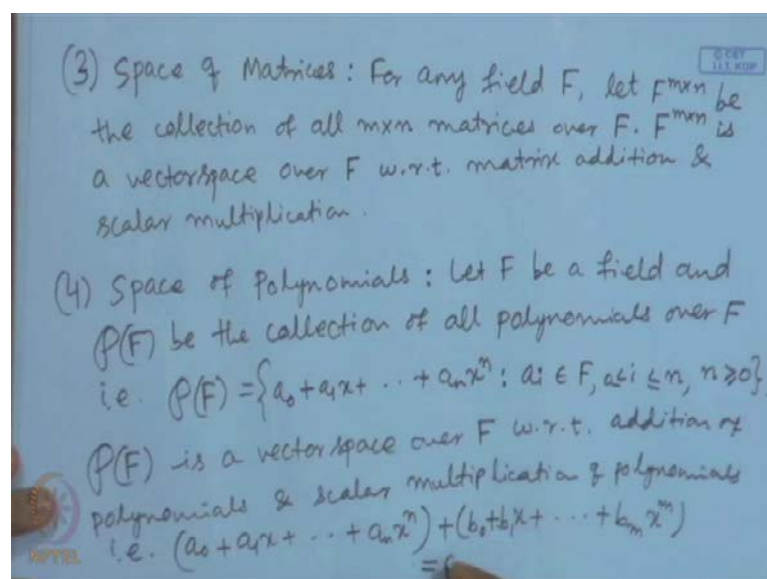 © CET
I.I.T. KGP
(3) Space of Matrices : For any field F, let F^{m×n} be
the collection of all m×n matrices over F. F^{m×n} is
a vectorspace over F w.r.t. matrix addition &
scalar multiplication.
(4) Space of Polynomials : Let F be a field and
P(F) be the collection of all polynomials over F
i.e. P(F) = {a₀ + a₁x + ·· + aₙxⁿ : aᵢ ∈ F, 0≤i≤n, n≥0}
P(F) is a vectorspace over F w.r.t. addition of
polynomials & scalar multiplication of polynomials
i.e. (a₀ + a₁x + ·· + aₙxⁿ) + (b₀ + b₁x + ··· + bₘxᵐ)
= (
NPTEL